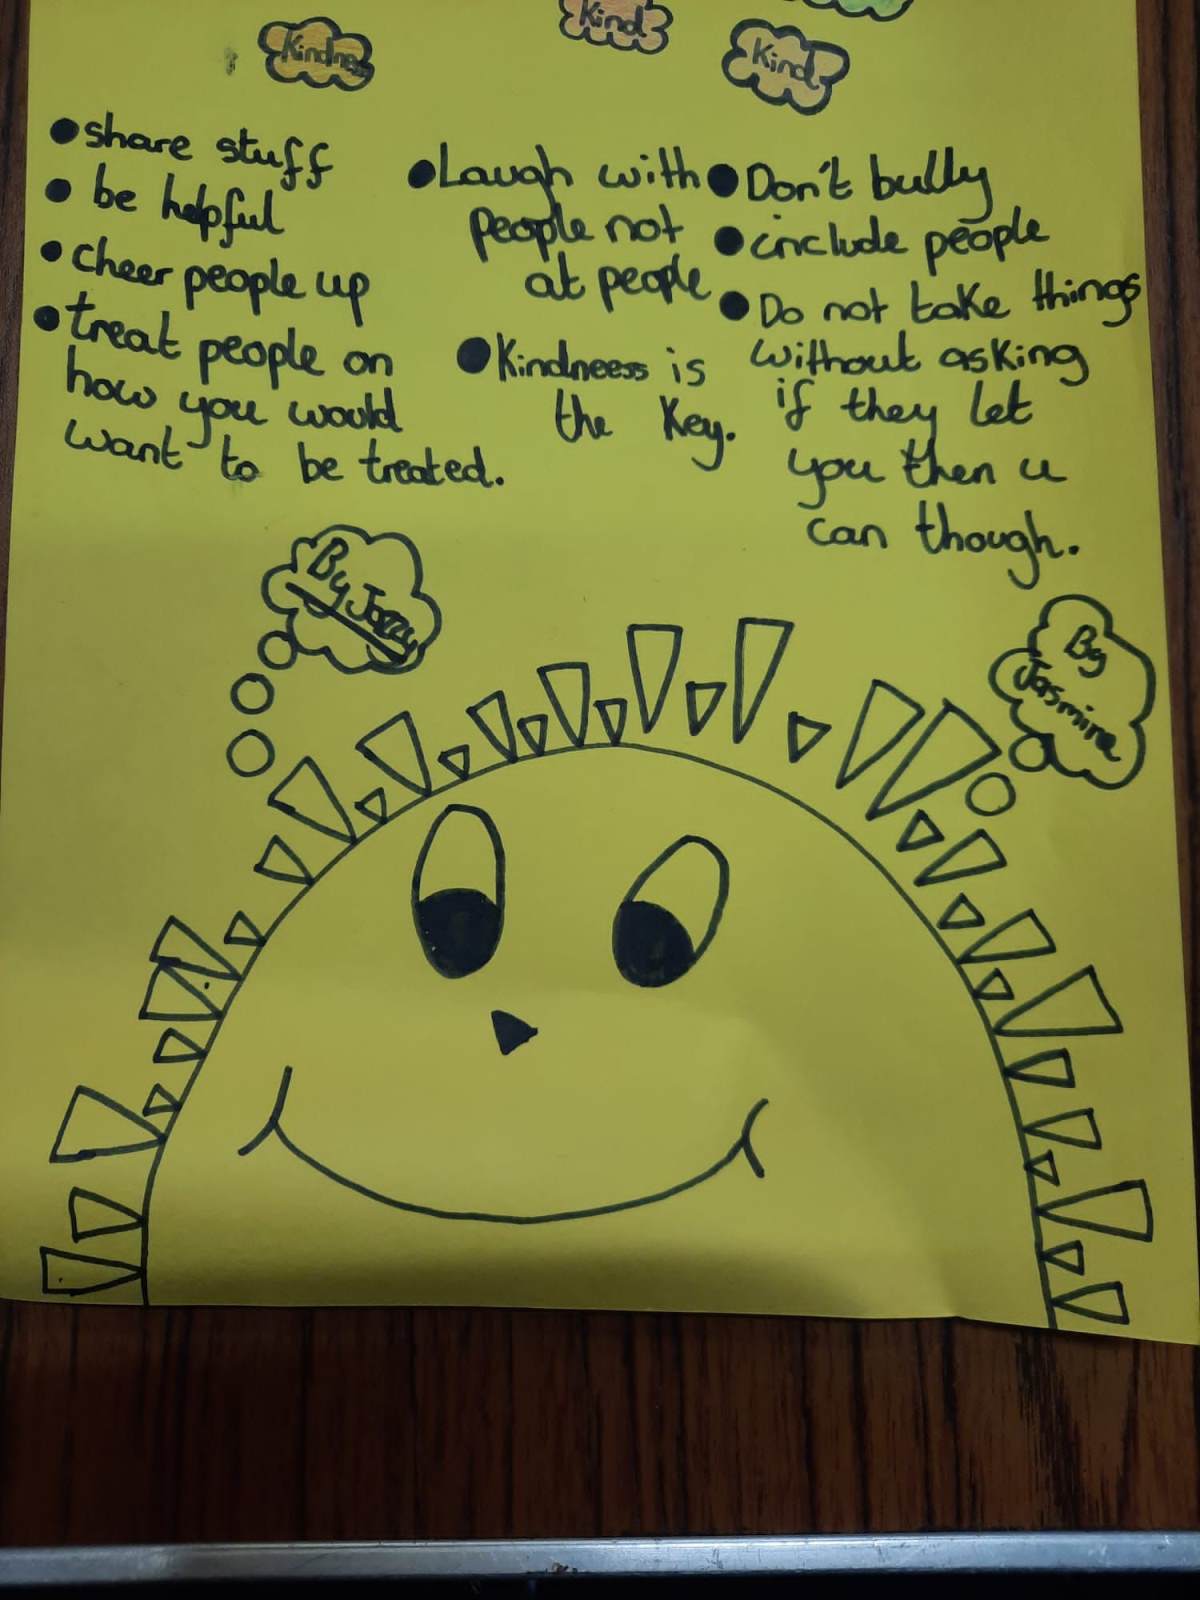 Kindness
Kind
Kind
●share stuff
●be helpful
●cheer people up
●treat people on
how you would
want to be treated.
●Laugh with
people not
at people
●Kindneess is
the Key.
●Don't bully
●include people
●Do not take things
without asking
if they let
you then u
can though.
By Jazzy
By
Jasmine